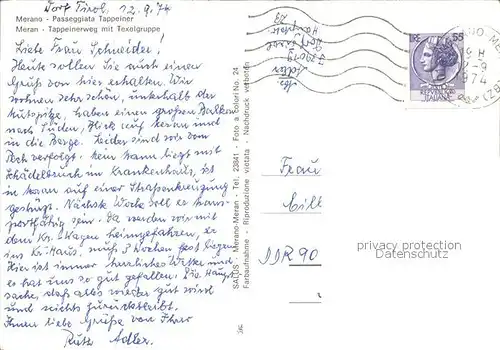 Dorf Tirol, 12.9.74
Merano - Passeggiata Tappeiner
Meran - Tappeinerweg mit Texelgruppe
Liebe Frau Schneider!
Heute sollen Sie auch einen
Gruß von hier erhalten. Wir
wohnen sehr schön, unterhalb der
Mutspitze, haben einen großen Balkon
nach Süden, Blick auf Meran und
in die Berge. Leider sind wir vom
Pech verfolgt. Mein Mann liegt mit
Schädelbruch im Krankenhaus, ist
in Meran auf einer Straßenkreuzung
gestürzt. Nächste Woche soll er trans-
portfähig sein. Da werden wir mit
dem Kr. Wagen heimgefahren, er
ins Kr. Haus, muß 3 Wochen fest liegen
Hier ist immer herrliches Wetter und
es hat uns so gut gefallen. Die Haupt-
sache, daß alles wieder gut wird
und nichts zurückbleibt.
Ihnen liebe Grüße von Ihrer
Ruth Adler.
SATUS - Merano-Meran - Tel. 23841 - Foto a colori No. 24
Farbaufnahme - Riproduzione vietata - Nachdruck verboten
Adler
LIRE 55
REPUBBLICA
ITALIANA
1974
Frau
DDR 90
privacy protection
Datenschutz